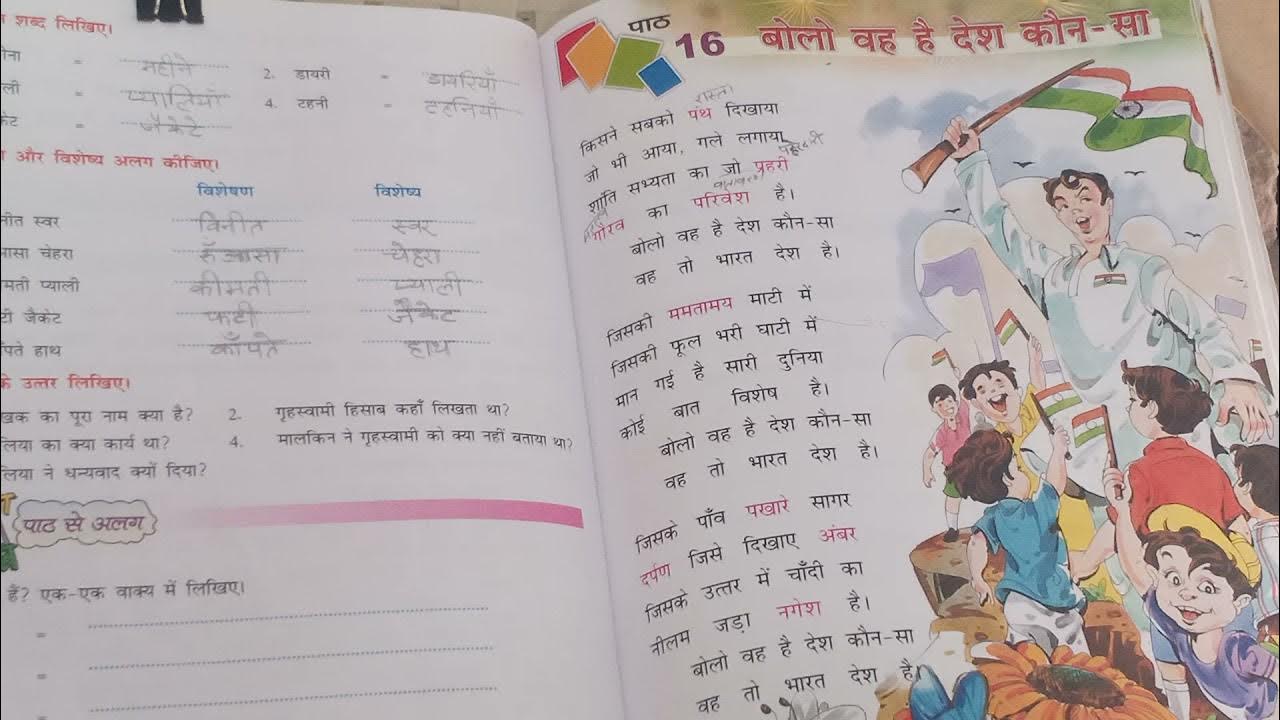 शब्द लिखिए।
= महीने 2. डायरी = डायरियाँ
= प्यालियाँ 4. टहनी = टहनियाँ
= जैकेटे
और विशेष्य अलग कीजिए।
विशेषण विशेष्य
स्वर विनीत स्वर
चेहरा रुँआसा चेहरा
प्याली कीमती प्याली
जैकेट फटी जैकेट
हाथ काँपते हाथ
उत्तर लिखिए।
का पूरा नाम क्या है? 2. गृहस्वामी हिसाब कहाँ लिखता था?
का क्या कार्य था? 4. मालकिन ने गृहस्वामी को क्या नहीं बताया था?
ने धन्यवाद क्यों दिया?
पाठ से अलग
हैं? एक-एक वाक्य में लिखिए।
=
=
=
पाठ
16 बोलो वह है देश कौन-सा
रास्ता
किसने सबको पंथ दिखाया
जो भी आया, गले लगाया
शांति सभ्यता का जो प्रहरी
गौरव का परिवेश है।
बोलो वह है देश कौन-सा
वह तो भारत देश है।
जिसकी ममतामय माटी में
जिसकी फूल भरी घाटी में
मान गई है सारी दुनिया
कोई बात विशेष है।
बोलो वह है देश कौन-सा
वह तो भारत देश है।
जिसके पाँव पखारे सागर
दर्पण जिसे दिखाए अंबर
जिसके उत्तर में चाँदी का
नीलम जड़ा नगेश है।
बोलो वह है देश कौन-सा
वह तो भारत देश है।